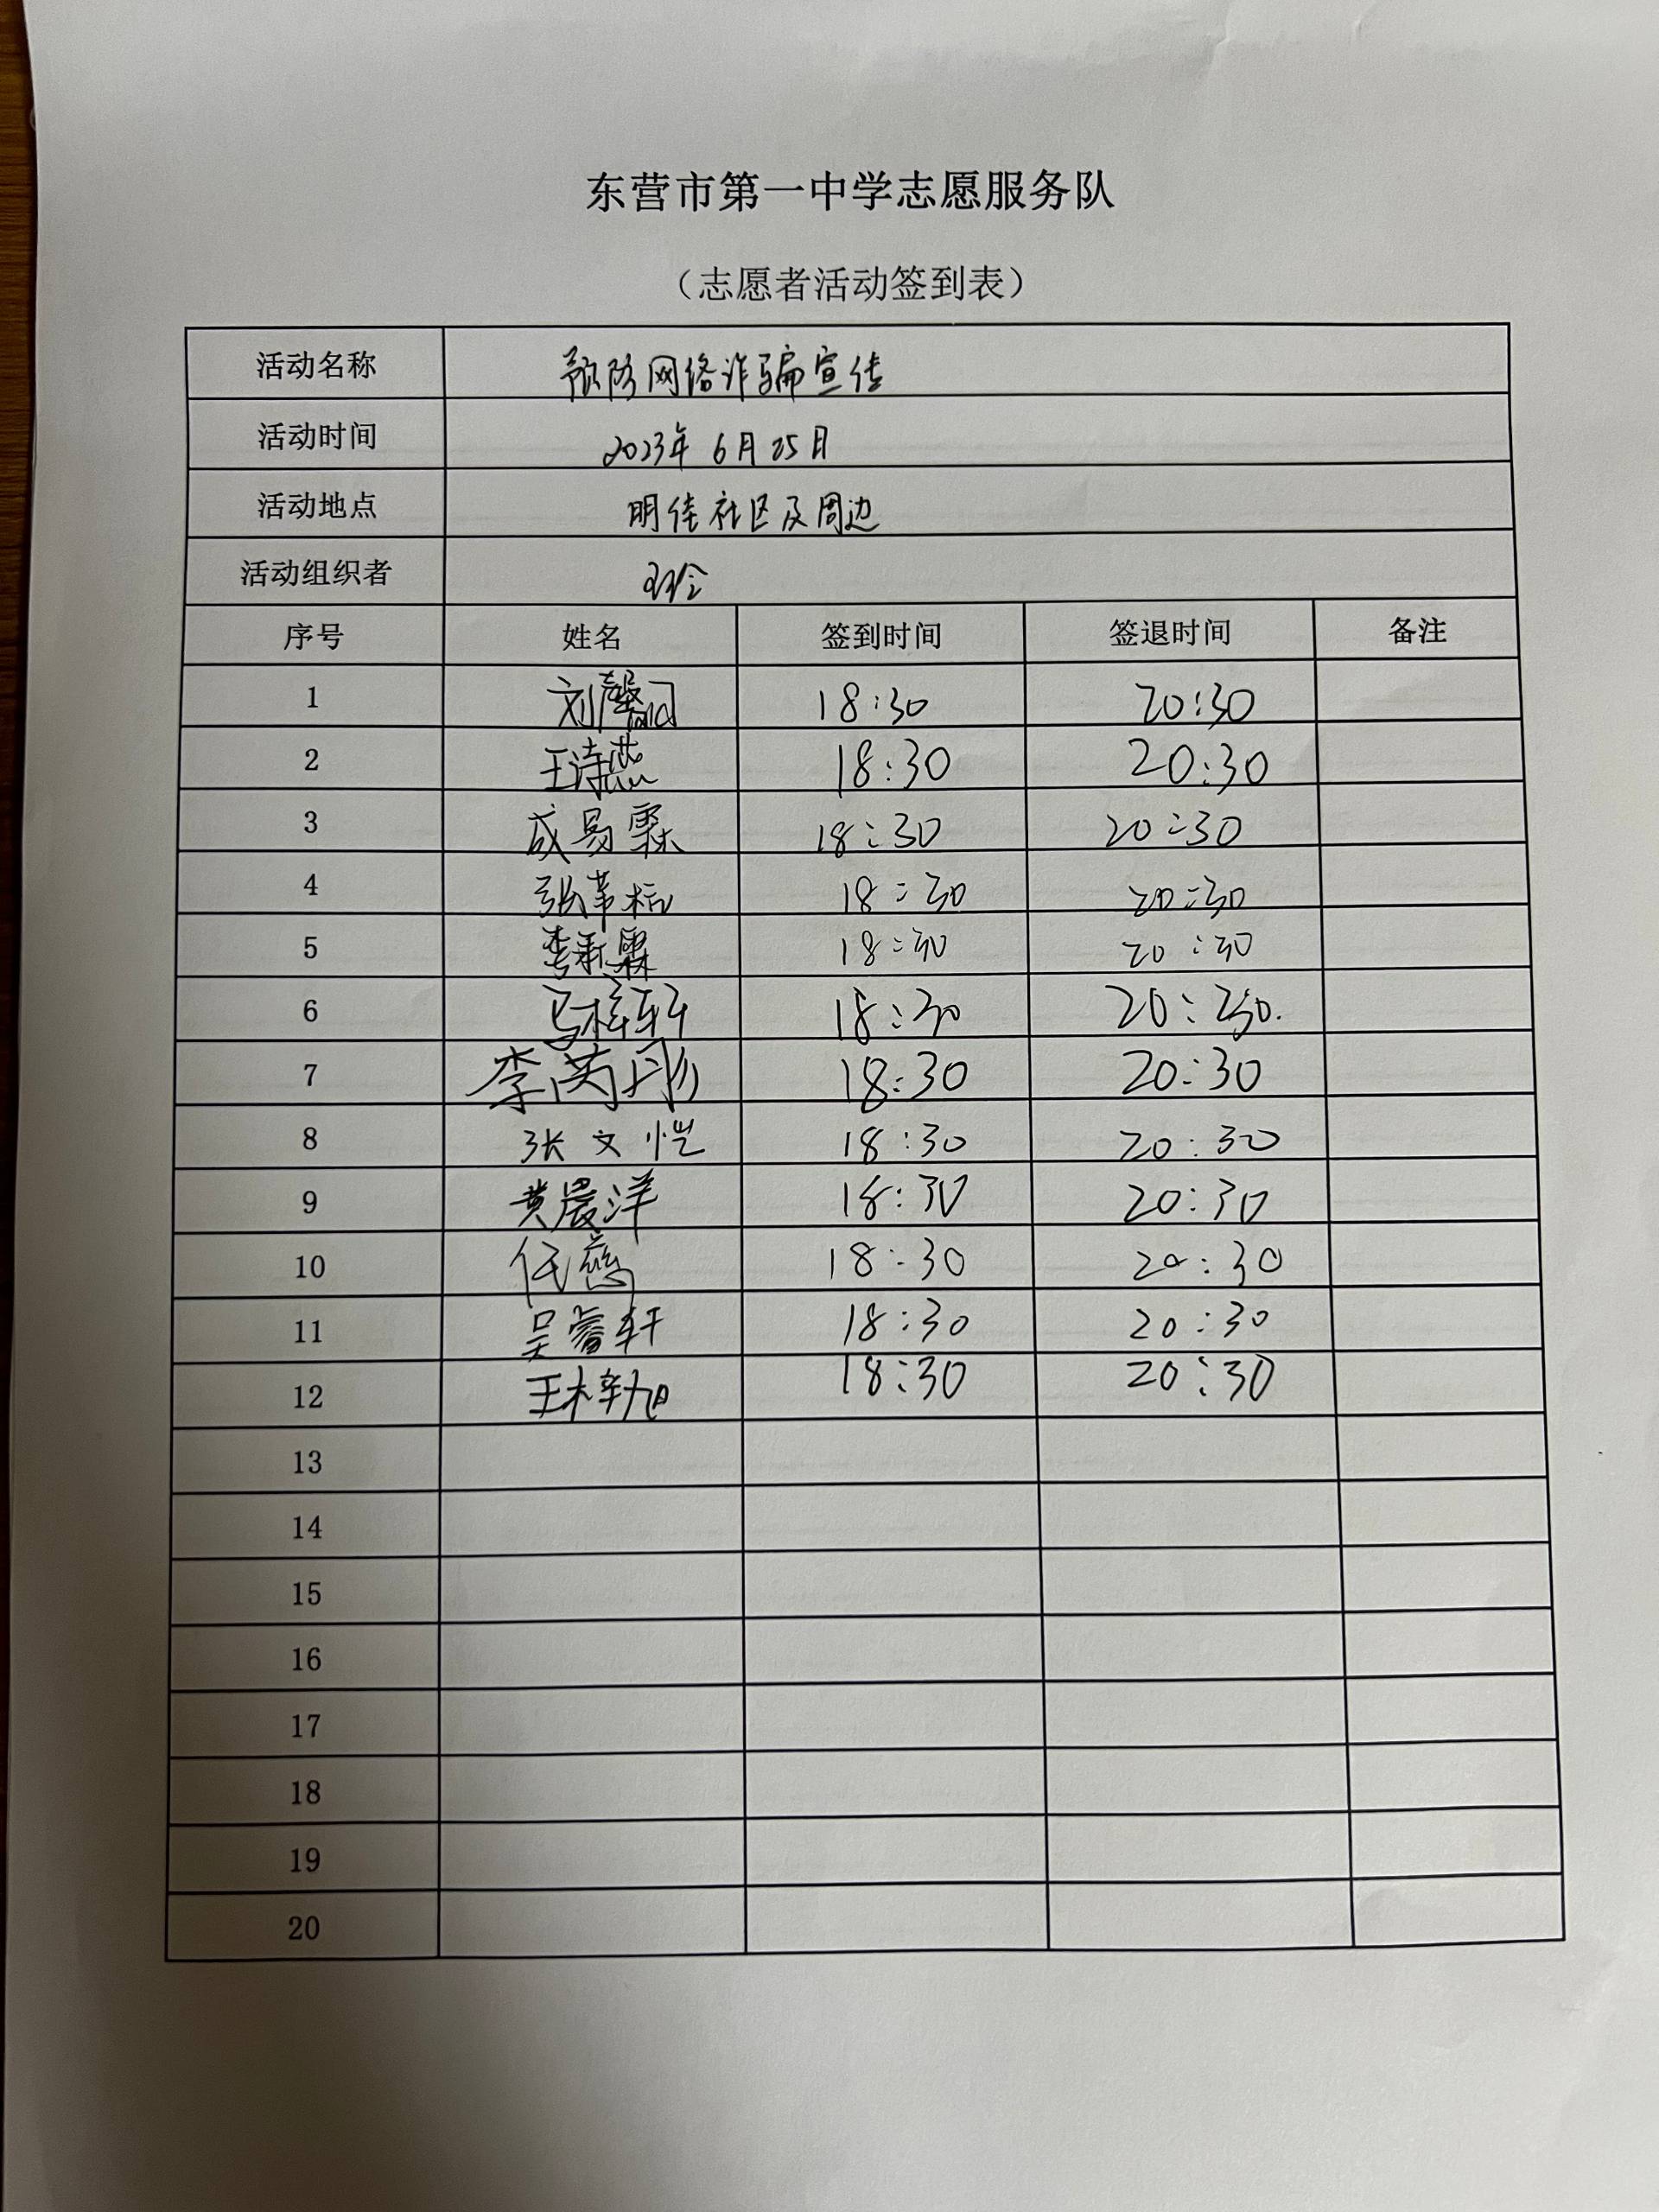 东营市第一中学志愿服务队
（志愿者活动签到表）
活动名称 预防网络诈骗宣传
活动时间 2023年6月25日
活动地点 明佳社区及周边
活动组织者
序号 姓名 签到时间 签退时间 备注
1 刘馨 18:30 20:30
2 王诗燕 18:30 20:30
3 成易霖 18:30 20:30
4 张 18:30 20:30
5 李 霖 18:30 20:30
6 马梓轩 18:30 20:30.
7 李芮彤 18:30 20:30
8 张文恺 18:30 20:30
9 黄晨洋 18:30 20:30
10 任慈 18:30 20:30
11 吴睿轩 18:30 20:30
12 王梓旭 18:30 20:30
13
14
15
16
17
18
19
20